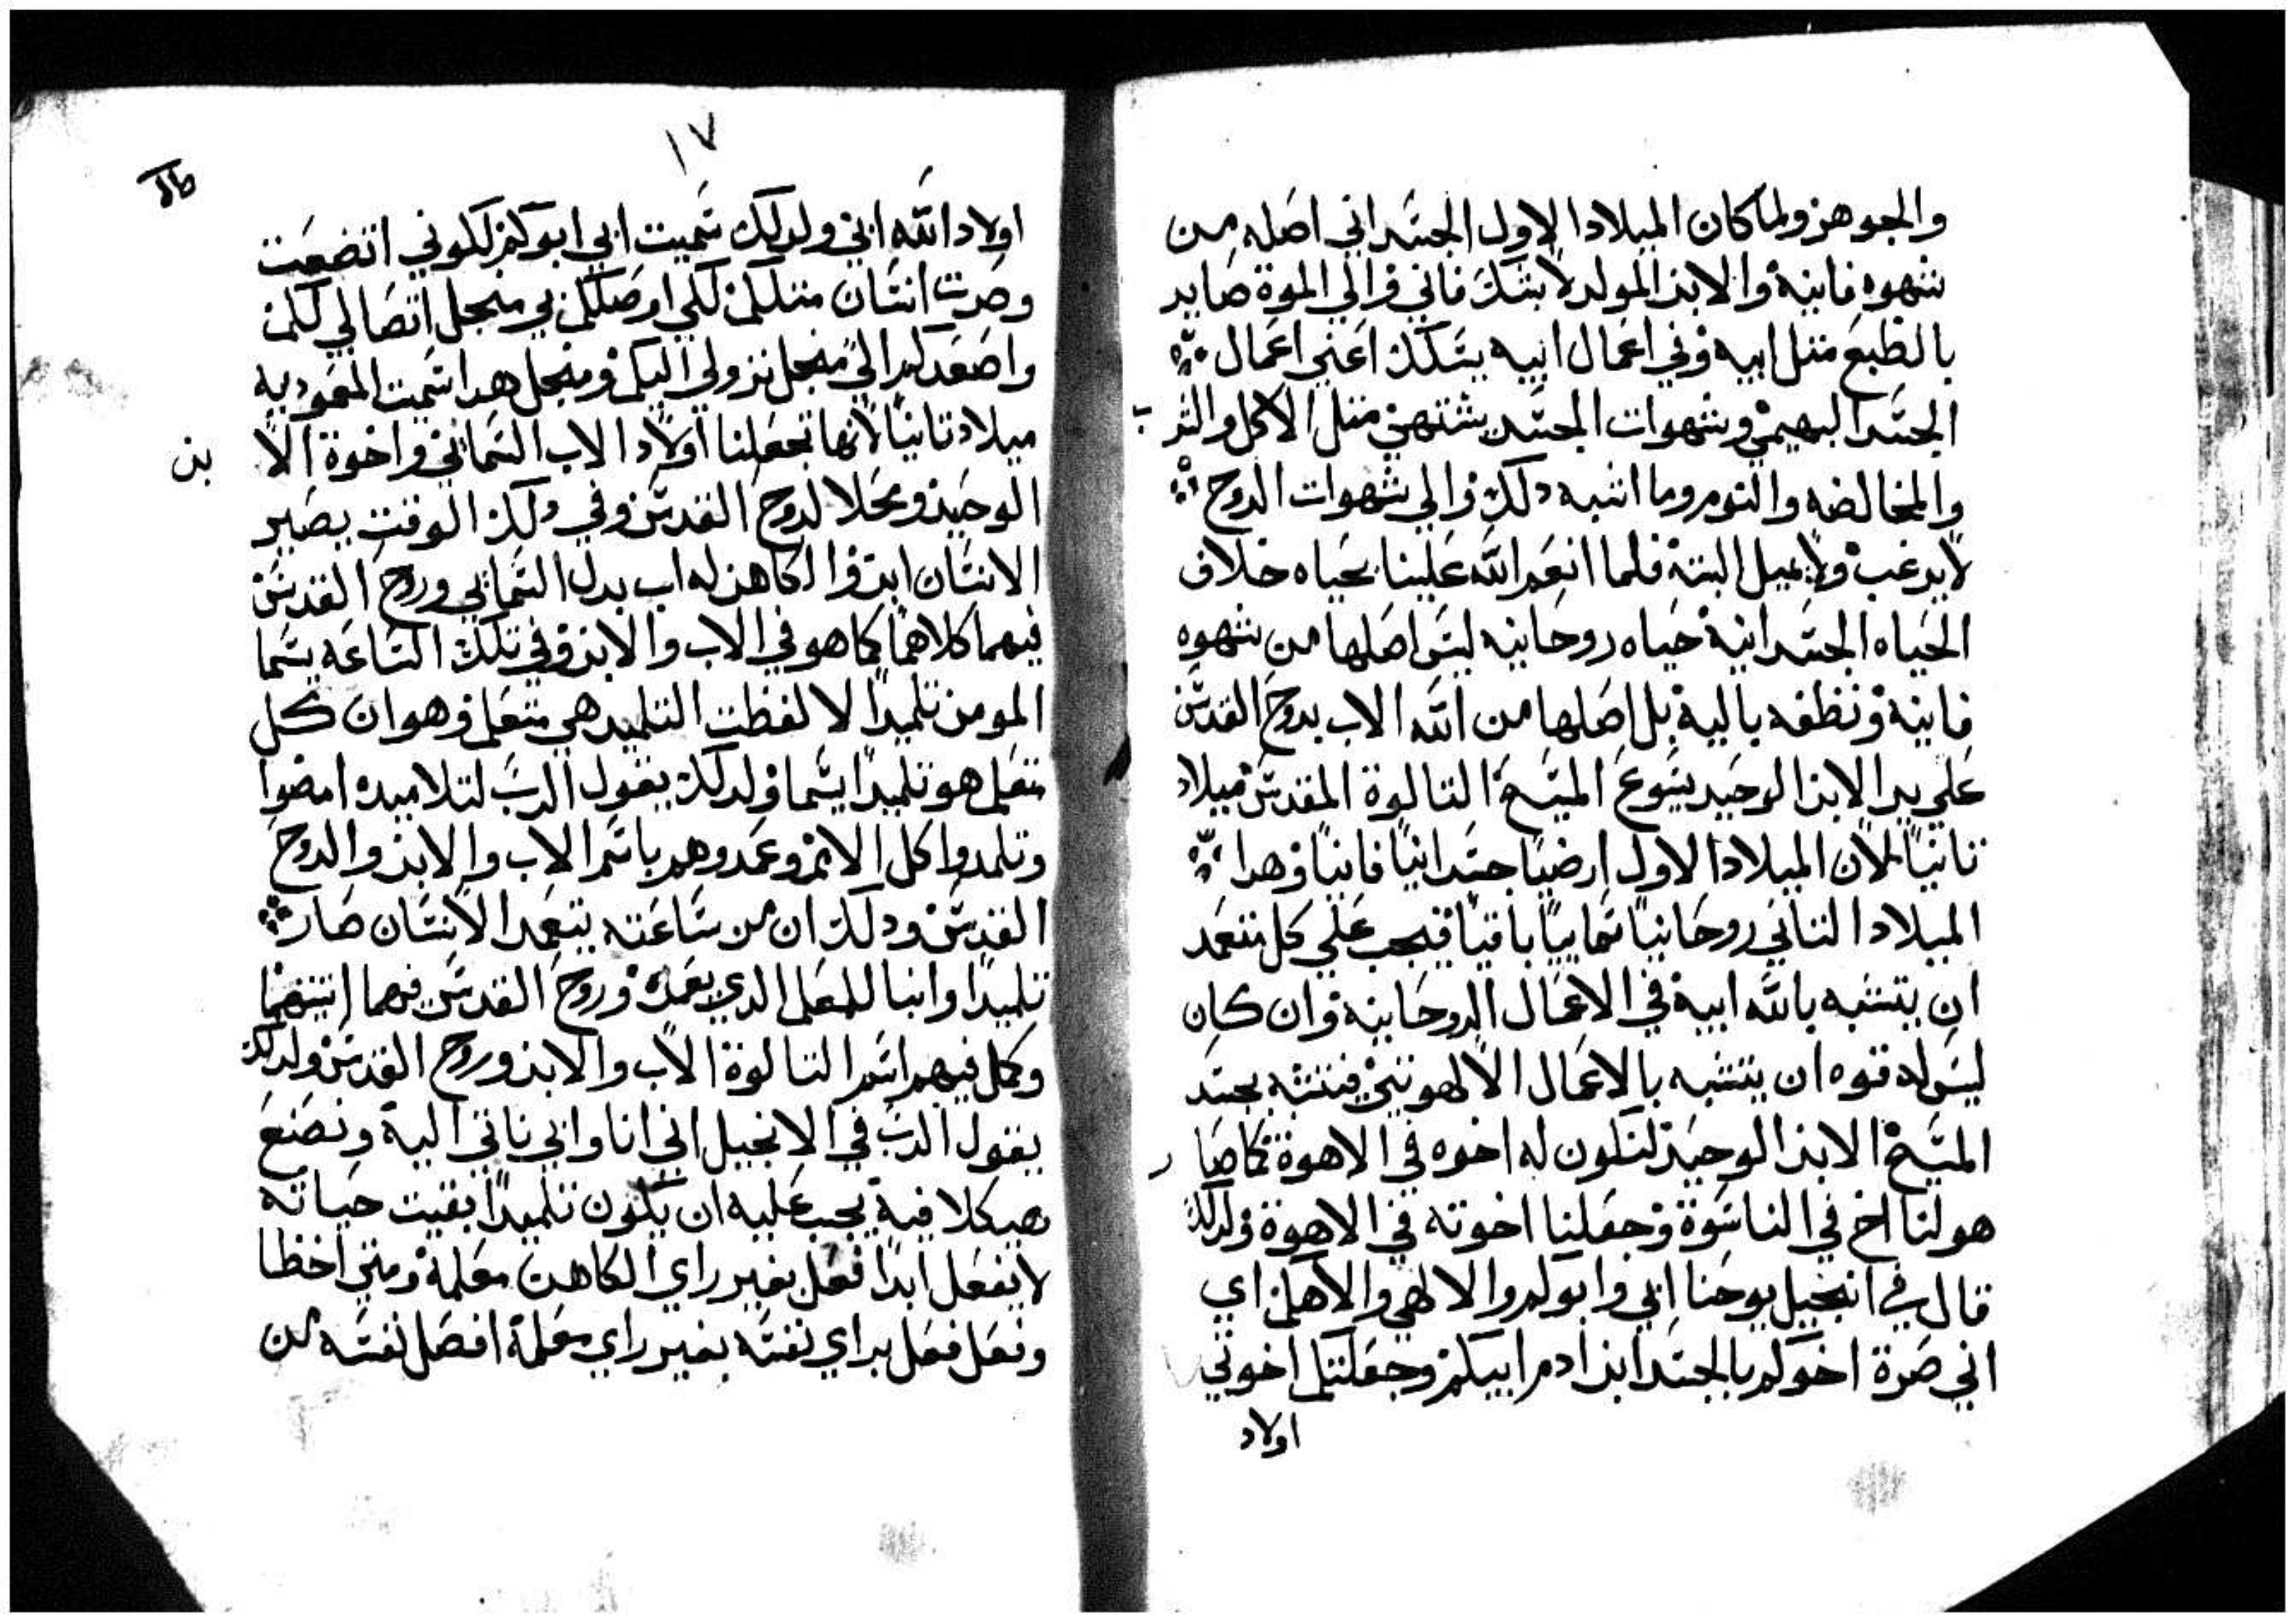 والجوهر ولما كان الميلاد الاول الجسداني اصله من
شهوه فانية والابن المولد لا بشك فاني والي الموة صاير
بالطبع مثل ابيه وفي اعمال ابيه يسلك اعني اعمال
الجسد البهيمي وشهوات الجسد يشتهي مثل الاكل والشرب
والمخالطه والنوم وما اشبه دلك والي شهوات الروح
لا يرغب ولا يميل البتة فلما انعم الله علينا بحياه خلاف
الحياه الجسدانية حياه روحانيه ليس اصلها من شهوه
فانية ونطفه باليه بل اصلها من الله الاب بروح القدس
علي يد الابن الوحيد يسوع المسيح التالوة المقدس ميلاد
تانيا لان الميلاد الاول ارضيا جسدانيا فانيا وهدا
الميلاد التاني روحانيا سماييا باقيا فيجب علي كل متعمد
ان يتشبه بالله ابيه في الاعمال الروحانية وان كان
ليس له قوه ان يتشبه بالاعمال الالهوتي فيتشبه بجسد
المسيح الابن الوحيد لتكون له اخوه في الاهوة كما صار
هو لنا اخ في الناسوة وجعلنا اخوته في الاهوة ولدلك
قال في انجيل يوحنا ابي وابوكم والاهي والاهكم اي
اني صرة اخوكم بالجسد ابن ادم ابيكم وجعلتكم اخوتي
اولاد
١٧
اولاد الله ابي ولدلك سميت ابي ابوكم لكوني اتضعت
وصرت انسان متلكم لكي اوصلكم بي منجل اتصالي لكم
واصعدكم الي منجل نزولي اليكم ومنجل هدا سميت المعمودية
ميلاد تانيا لانها تجعلنا اولاد الاب السماني واخوة الابن
الوحيد ومحلا لروح القدس وفي دلك الوقت يصير
الانسان ابن والكاهن له اب بدل السماني وروح القدس
فيهما كلاهما كما هو في الاب والابن وفي تلك الساعه يسما
المومن تلميدا لا لفظت التلميد هي متعلم وهو ان كل
متعلم هو تلميدا يسما ولدلك يقول الرب لتلاميده امضوا
وتلمدوا كل الامم وعمدوهم باسم الاب والابن والروح
القدس ودلك ان من ساعته يتعمد الانسان صار
تلميدا وابنا للمعلم الدي يعمده وروح القدس فهما اتنينهما
وكمل فيهم اسم التالوة الاب والابن وروح القدس ولدلك
يقول الرب في الانجيل اني انا وابي ناتي اليه ونصنع
هيكلا فيه يجب عليه ان يكون تلميدا بقيت حياته
لا يفعل ابدا فعل بغير راي الكاهن معلمه ومتي اخطا
وفعل فعل براي نفسه بغير راي معلمه افصل نفسه من